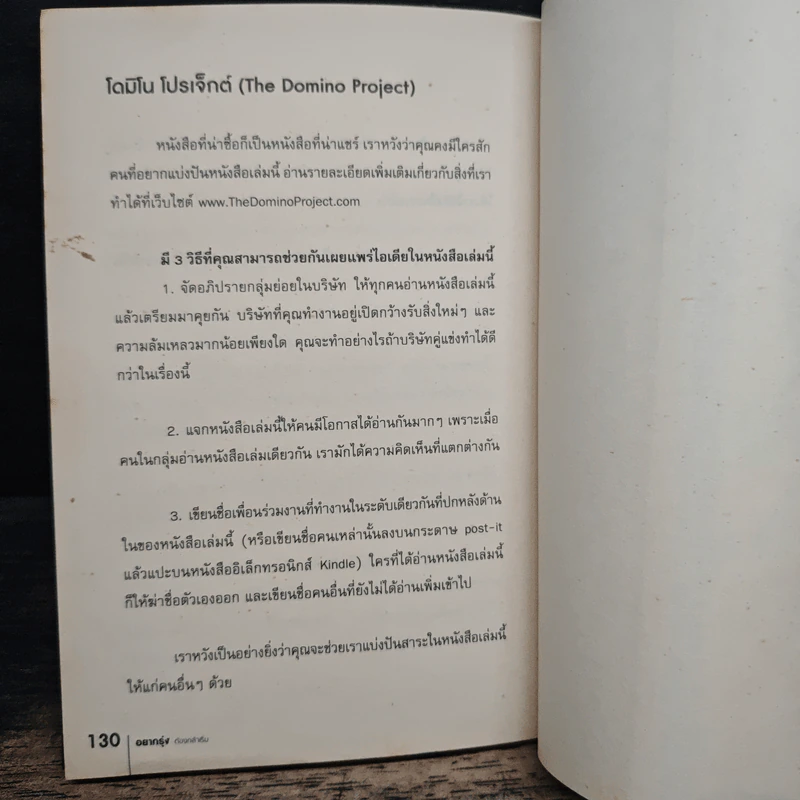 โดมิโน โปรเจ็กต์ (The Domino Project)
หนังสือที่น่าซื้อก็เป็นหนังสือที่น่าแชร์ เราหวังว่าคุณคงมีใครสัก
คนที่อยากแบ่งปันหนังสือเล่มนี้ อ่านรายละเอียดเพิ่มเติมเกี่ยวกับสิ่งที่เรา
ทำได้ที่เว็บไซต์ www.TheDominoProject.com
มี 3 วิธีที่คุณสามารถช่วยกันเผยแพร่ไอเดียในหนังสือเล่มนี้
1. จัดอภิปรายกลุ่มย่อยในบริษัท ให้ทุกคนอ่านหนังสือเล่มนี้
แล้วเตรียมมาคุยกัน บริษัทที่คุณทำงานอยู่เปิดกว้างรับสิ่งใหม่ๆ และ
ความล้มเหลวมากน้อยเพียงใด คุณจะทำอย่างไรถ้าบริษัทคู่แข่งทำได้ดี
กว่าในเรื่องนี้
2. แจกหนังสือเล่มนี้ให้คนมีโอกาสได้อ่านกันมากๆ เพราะเมื่อ
คนในกลุ่มอ่านหนังสือเล่มเดียวกัน เรามักได้ความคิดเห็นที่แตกต่างกัน
3. เขียนชื่อเพื่อนร่วมงานที่ทำงานในระดับเดียวกันที่ปกหลังด้าน
ในของหนังสือเล่มนี้ (หรือเขียนชื่อคนเหล่านั้นลงบนกระดาษ post-it
แล้วแปะบนหนังสืออิเล็กทรอนิกส์ Kindle) ใครที่ได้อ่านหนังสือเล่มนี้
ก็ให้ฆ่าชื่อตัวเองออก และเขียนชื่อคนอื่นที่ยังไม่ได้อ่านเพิ่มเข้าไป
เราหวังเป็นอย่างยิ่งว่าคุณจะช่วยเราแบ่งปันสาระในหนังสือเล่มนี้
ให้แก่คนอื่นๆ ด้วย
130 อยากรุ่ง ต้องกล้าเริ่ม